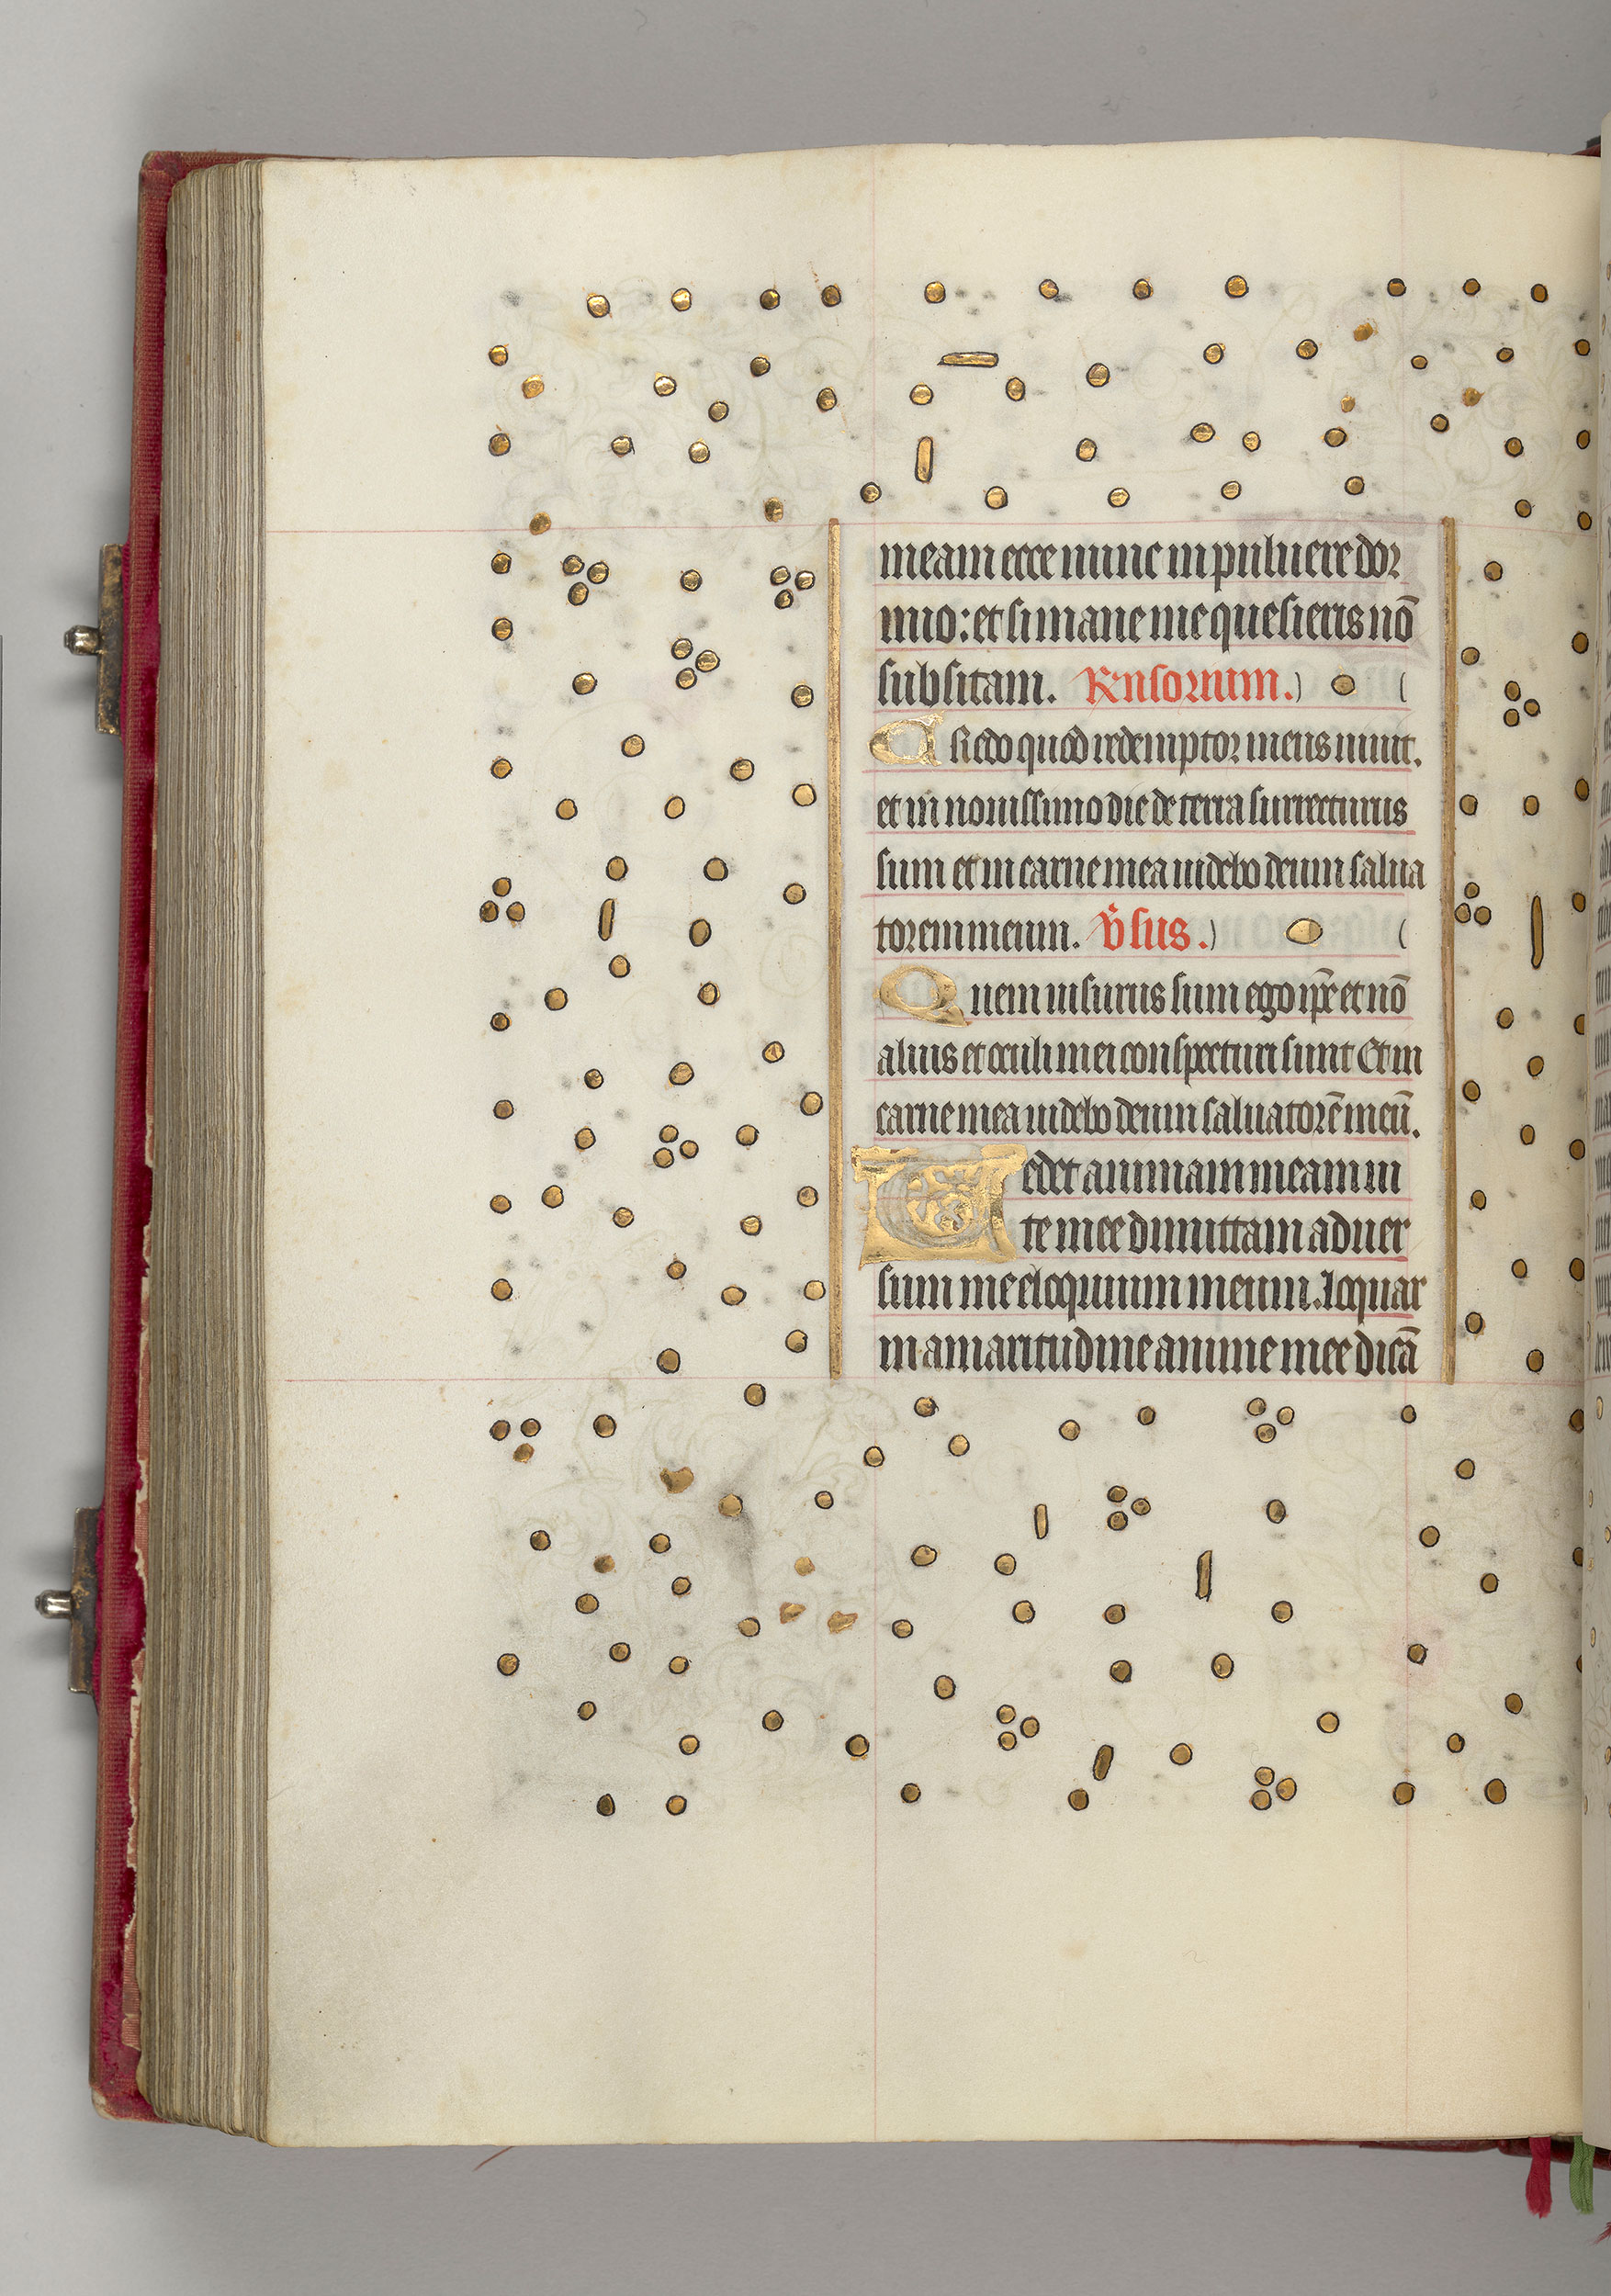 meam ecce nunc in puluere dor
mio: et si mane me quesieris nō
subsitam. Rnsorium.
Credo quod redemptor meus uiuit.
et in nouissimo die de terra surrecturus
sum et in carne mea uidebo deum salua
torem meum. v̄sus.
Quem uisurus sum ego ip̄e et nō
alius et oculi mei conspecturi sunt Et in
carne mea uidebo deum saluatorē meū.
Tedet animam meam ui
te mee dimittam aduer
sum me eloquium meum. loquar
in amaritudine anime mee dicā